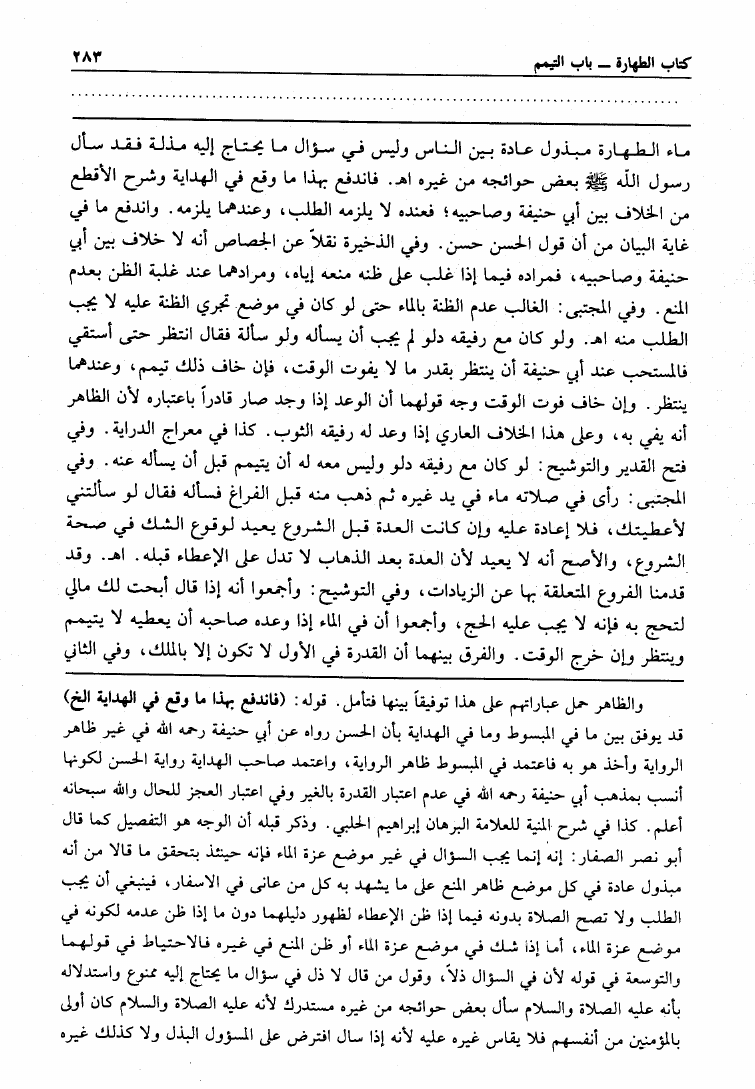 كتاب الطهارة ـ باب التيمم ٢٨٣
ماء الطهارة مبذول عادة بين الناس وليس في سؤال ما يحتاج إليه مذلة فقد سأل
رسول الله ﷺ بعض حوائجه من غيره اهـ. فاندفع بهذا ما وقع في الهداية وشرح الأقطع
من الخلاف بين أبي حنيفة وصاحبيه؛ فعنده لا يلزمه الطلب، وعندهما يلزمه. واندفع ما في
غاية البيان من أن قول الحسن حسن. وفي الذخيرة نقلاً عن الجصاص أنه لا خلاف بين أبي
حنيفة وصاحبيه، فمراده فيما إذا غلب على ظنه منعه إياه، ومرادهما عند غلبة الظن بعدم
المنع. وفي المجتبى: الغالب عدم الظنة بالماء حتى لو كان في موضع تجري الظنة عليه لا يجب
الطلب منه اهـ. ولو كان مع رفيقه دلو لم يجب أن يسأله ولو سألة فقال انتظر حتى أستقي
فالمستحب عند أبي حنيفة أن ينتظر بقدر ما لا يفوت الوقت، فإن خاف ذلك تيمم، وعندهما
ينتظر. وإن خاف فوت الوقت وجه قولهما أن الوعد إذا وجد صار قادراً باعتباره لأن الظاهر
أنه يفي به، وعلى هذا الخلاف العاري إذا وعد له رفيقه الثوب. كذا في معراج الدراية. وفي
فتح القدير والتوشيح: لو كان مع رفيقه دلو وليس معه له أن يتيمم قبل أن يسأله عنه. وفي
المجتبى: رأى في صلاته ماء في يد غيره ثم ذهب منه قبل الفراغ فسأله فقال لو سألتني
لأعطيتك، فلا إعادة عليه وإن كانت العدة قبل الشروع يعيد لوقوع الشك في صحة
الشروع، والأصح أنه لا يعيد لأن العدة بعد الذهاب لا تدل على الإعطاء قبله. اهـ. وقد
قدمنا الفروع المتعلقة بها عن الزيادات، وفي التوشيح: وأجمعوا أنه إذا قال أبحت لك مالي
لتحج به فإنه لا يجب عليه الحج، وأجمعوا أن في الماء إذا وعده صاحبه أن يعطيه لا يتيمم
وينتظر وإن خرج الوقت. والفرق بينهما أن القدرة في الأول لا تكون إلا بالملك، وفي الثاني
والظاهر حمل عباراتهم على هذا توفيقاً بينها فتأمل. قوله: (فاندفع بهذا ما وقع في الهداية الخ)
قد يوفق بين ما في المبسوط وما في الهداية بأن الحسن رواه عن أبي حنيفة رحمه الله في غير ظاهر
الرواية وأخذ هو به فاعتمد في المبسوط ظاهر الرواية، واعتمد صاحب الهداية رواية الحسن لكونها
أنسب بمذهب أبي حنيفة رحمه الله في عدم اعتبار القدرة بالغير وفي اعتبار العجز للحال والله سبحانه
أعلم. كذا في شرح المنية للعلامة البرهان إبراهيم الحلبي. وذكر قبله أن الوجه هو التفصيل كما قال
أبو نصر الصفار: إنه إنما يجب السؤال في غير موضع عزة الماء فإنه حينئذ يتحقق ما قالا من أنه
مبذول عادة في كل موضع ظاهر المنع على ما يشهد به كل من عانى في الاسفار، فينبغي أن يجب
الطلب ولا تصح الصلاة بدونه فيما إذا ظن الإعطاء لظهور دليلهما دون ما إذا ظن عدمه لكونه في
موضع عزة الماء، أما إذا شك في موضع عزة الماء أو ظن المنع في غيره فالاحتياط في قولهما
والتوسعة في قوله لأن في السؤال ذلاً، وقول من قال لا ذل في سؤال ما يحتاج إليه ممنوع واستدلاله
بأنه عليه الصلاة والسلام سأل بعض حوائجه من غيره مستدرك لأنه عليه الصلاة والسلام كان أولى
بالمؤمنين من أنفسهم فلا يقاس غيره عليه لأنه إذا سال افترض على المسؤول البذل ولا كذلك غيره